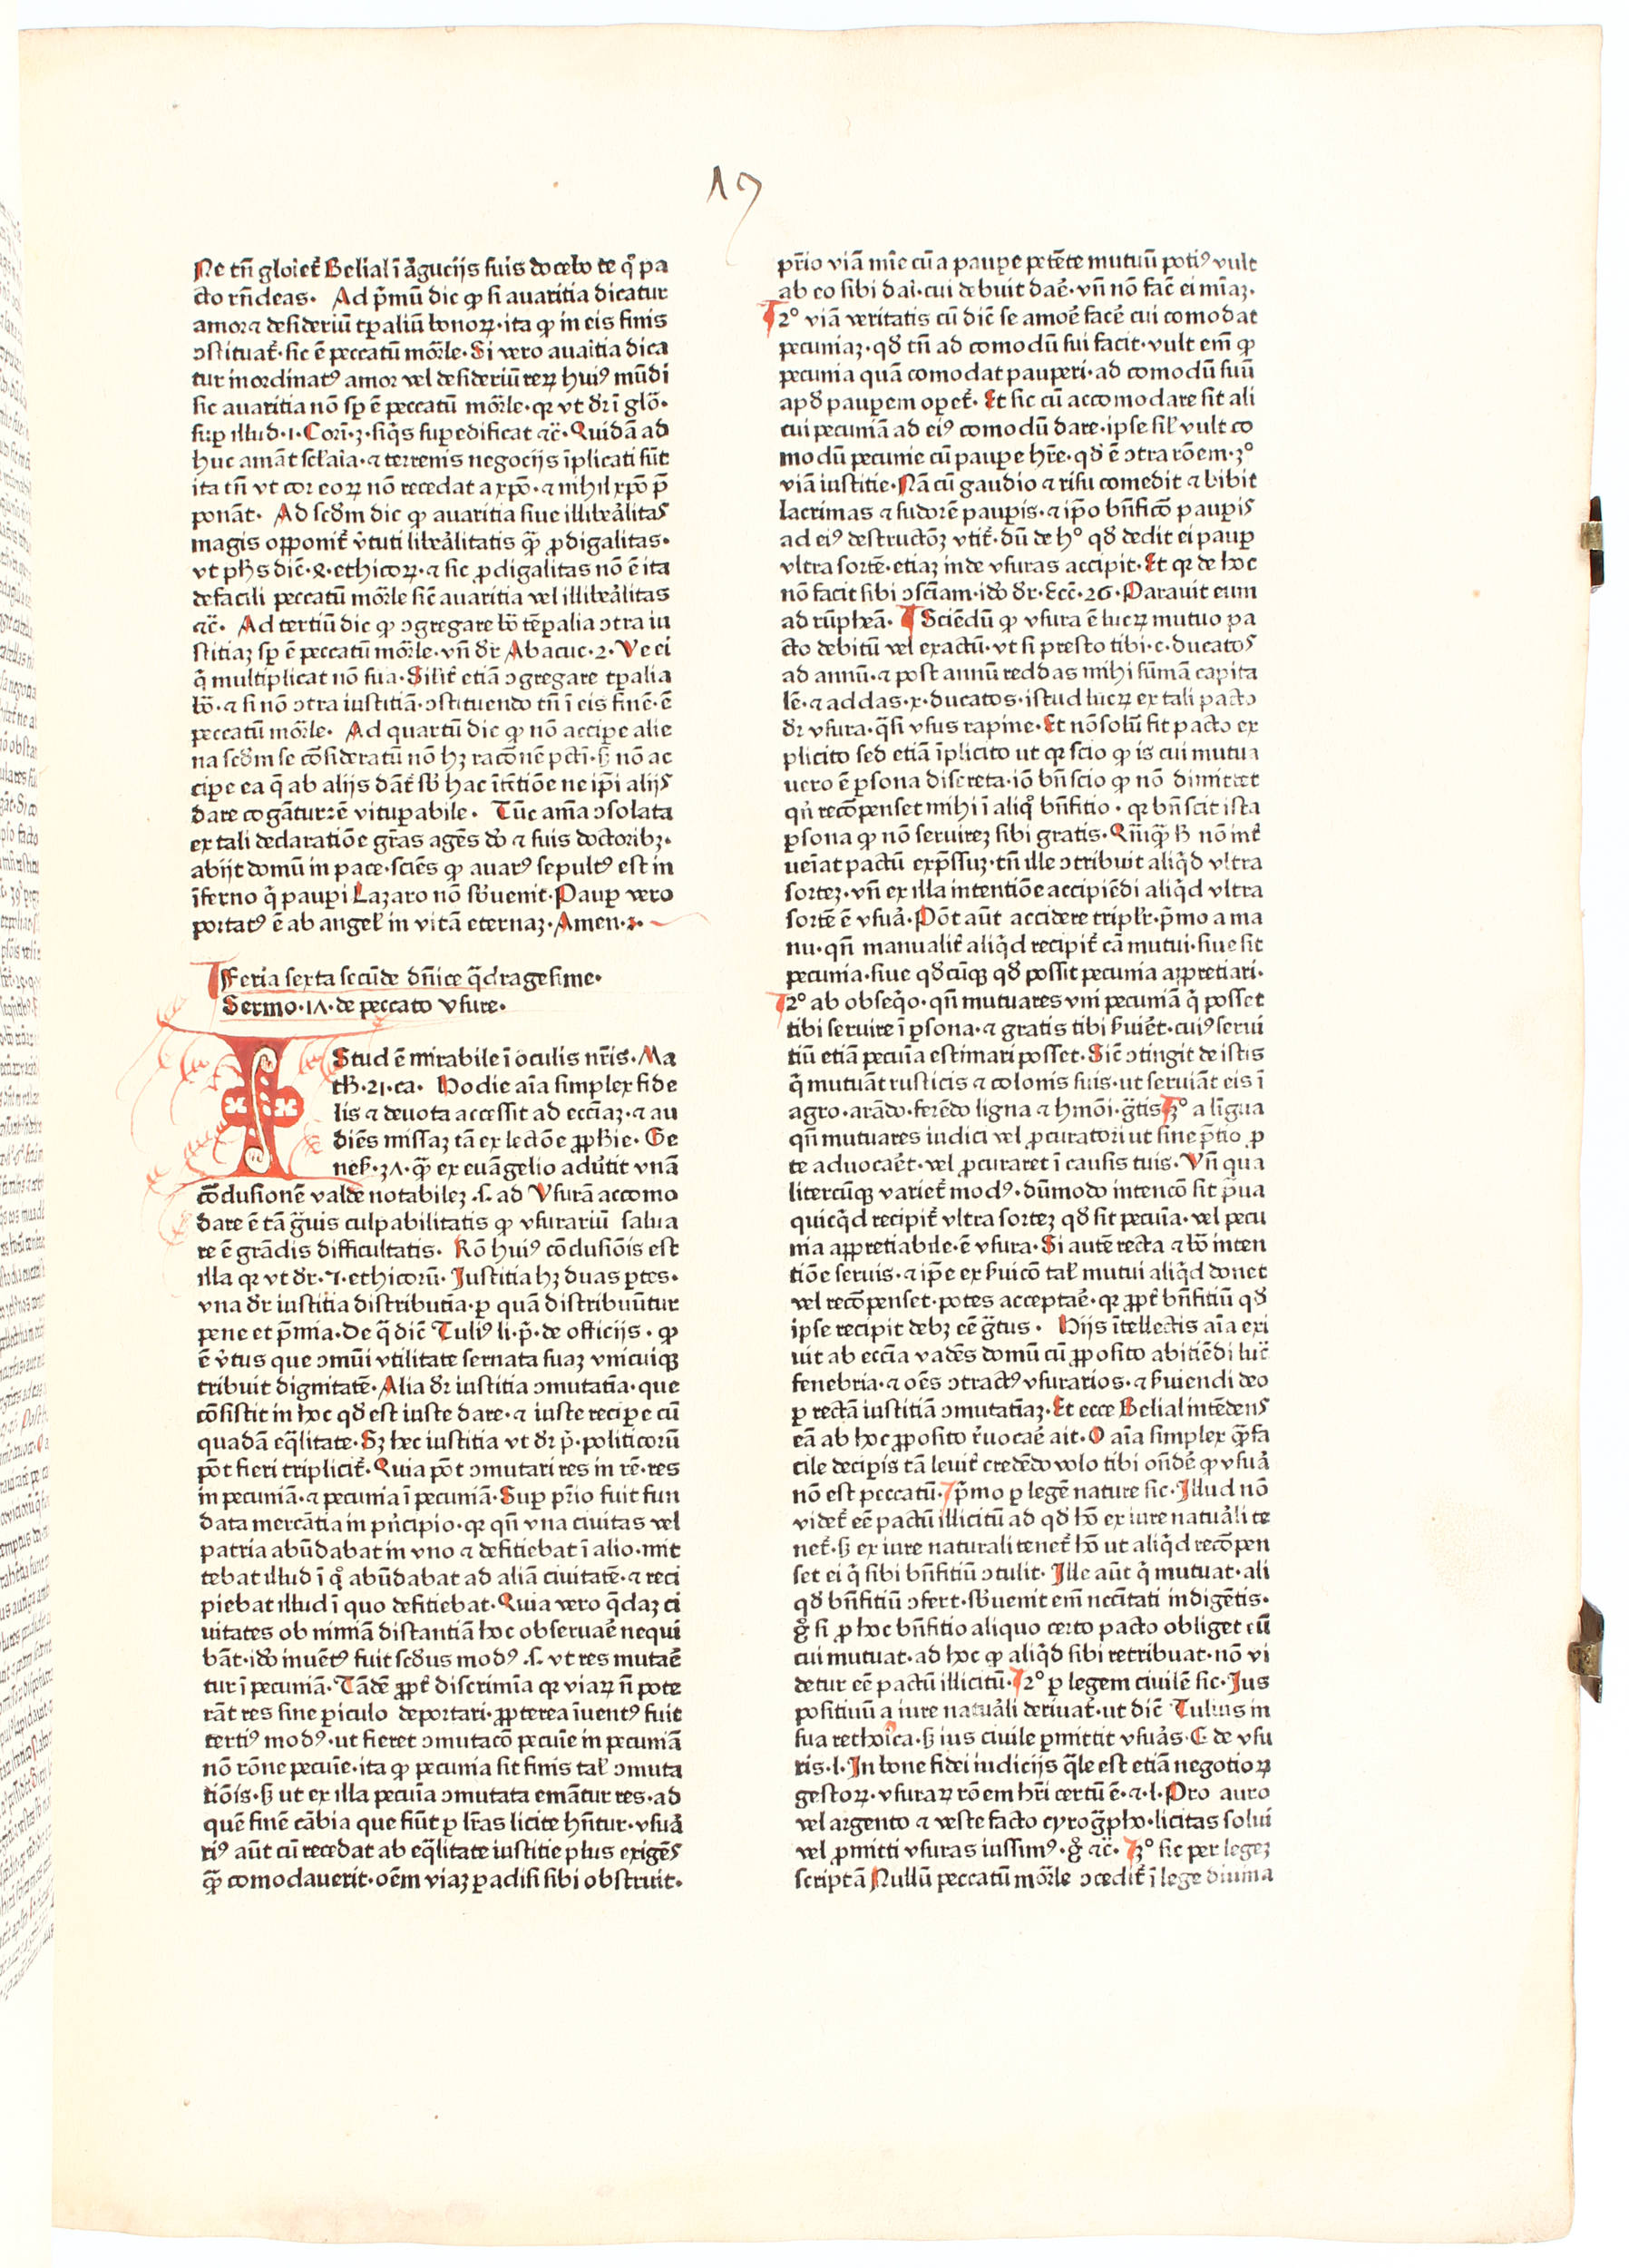 17
Ne tñ gloiet᷑ Belial ĩ ãguciijs suis docebo te qͦ pa
cto rñdeas. Ad p̃mũ dic ꝙ si auaritia dicatur
amor ⁊ desideriũ tꝑaliũ bonoꝝ. ita ꝙ in eis finis
ↄstituat᷑. sic ẽ peccatũ mor̃le. Si vero auaitia dica
tur inordinatꝰ amor vel desideriũ reꝝ huiꝰ mũdi
sic auaritia nõ sp̃ ẽ peccatũ mor̃le. qꝛ vt dr̃ ĩ glõ.
suꝑ illud. 1. Corĩ. 3. siq̃s suꝑedificat ⁊c̃. Quidã ad
huc amãt sc̃laia. ⁊ terrenis negocijs ĩplicati sũt
ita tñ vt cor eoꝝ nõ recedat a xp̃o. ⁊ nihil xp̃o p̃
ponãt. Ad scd̃m dic ꝙ auaritia siue illibãlitas
magis opponit᷑ v̾tuti libãlitatis ꝙ̃ ꝓdigalitas.
vt pħs dic̃. 4. ethicoꝝ. ⁊ sic ꝓdigalitas nõ ẽ ita
defacili peccatũ mor̃le sic̃ auaritia vel illibãlitas
⁊c̃. Ad tertiũ dic ꝙ ↄgregare bõ tẽꝑalia ↄtra iu
stitiaꝫ sp̃ ẽ peccatũ mor̃le. vñ dr̃ Abacuc. 2. Ve ei
q̃ multiplicat nõ sua. Silit᷑ etiã ↄgregare tꝑalia
bõ. ⁊ si nõ ↄtra iustitiã. ↄstituendo tñ ĩ eis finẽ. ẽ
peccatũ mor̃le. Ad quartũ dic ꝙ nõ acciꝑe alie
na scd̃m se cõsideratũ nõ hꝫ racõnẽ pctĩ. sꝫ nõ ac
ciꝑe ea q̃ ab alijs dãt᷑ sb̾ hac ĩtẽtiõe ne ip̃i alijs
dare cogãtur ẽ vituꝑabile. Tũc aĩa ↄsolata
ex tali declaratiõe gr̃as agẽs dõ ⁊ suis doctoribꝫ.
abijt domũ in pace. sciẽs ꝙ auarꝰ sepultꝰ est in
ĩferno q̃ pauꝑi Lazaro nõ sb̾uenit. Pauꝑ vero
portatꝰ ẽ ab angel̾ in vitã eternaꝫ. Amen.
Feria sexta secũde dñice q̃dragesime.
Sermo. 17. de peccato vsure.
IStud ẽ mirabile ĩ oculis nr̃is. Ma
tħ. 21. ca. Hodie aĩa simplex fide
lis ⁊ deuota accessit ad ecciaꝫ. ⁊ au
diẽs missaꝫ tã ex lectõe ꝓpħie. Ge
neẜ. 37. ꝙ̃ ex euãgelio adu̾tit vnã
cõclusionẽ valde notabileꝫ .s. ad Vsurã accomo
dare ẽ tã g̃uis culpabilitatis ꝙ vsurariũ salua
re ẽ grãdis difficultatis. Rõ huiꝰ cõclusiõis est
illa qꝛ vt dr̃. 7. ethicorũ. Justitia hꝫ duas ꝑtes.
vna dr̃ iustitia distributĩa. ꝑ quã distribuũtur
pene et p̃mia. De q̃ dic̃ Tuliꝰ li. p̃. de officijs. ꝙ
ẽ v̾tus que ↄmũi vtilitate seruata suaꝫ vnicuiqꝫ
tribuit dignitatẽ. Alia dr̃ iustitia ↄmutatĩa. que
cõsistit in hoc qd̾ est iuste dare. ⁊ iuste reciꝑe cũ
quadã eq̃litate. Sꝫ hec iustitia vt dr̃ p̃. politicorũ
põt fieri triplicit᷑. Quia põt ↄmutari res in rẽ. res
in pecuniã. ⁊ pecunia ĩ pecuniã. Suꝑ pr̃io fuit fun
data mercãtia in pñcipio. qꝛ qñ vna ciuitas vel
patria abũdabat in vno ⁊ defitiebat ĩ alio. mit
tebat illud ĩ qͦ abũdabat ad aliã ciuitatẽ. ⁊ reci
piebat illud ĩ quo defitiebat. Quia vero q̃daꝫ ci
uitates ob nimiã distantiã hoc obseruar̃ nequi
bãt. idõ inuẽtꝰ fuit scd̾us modꝰ .s. vt res mutar̃
tur ĩ pecuniã. Tãdẽ ꝓpt᷑ discrimĩa qꝛ viaꝝ ñ pote
rãt res sine ꝑiculo deportari. ꝓpterea ĩuentꝰ fuit
tertiꝰ modꝰ. ut fieret ↄmutacõ pecuĩe in pecuniã
nõ rõne pecuĩe. ita ꝙ pecunia sit finis tal̾ ↄmuta
tiõis. sꝫ ut ex illa pecuĩa ↄmutata emãtur res. ad
quẽ finẽ cãbia que fiũt ꝑ lr̃as licite hñtur. vsuã
riꝰ aũt cũ recedat ab eq̃litate iustitie plus exigẽs
ꝙ̃ comodauerit. oẽm viaꝫ ꝑadisi sibi obstruit.
pr̃io viã mĩe cũ a pauꝑe petẽte mutuũ potiꝰ vult
ab eo sibi dai. cui debuit dar̃. vñ nõ fac̃ ei mĩaꝫ.
2º viã veritatis cũ dic̃ se amor̃ facẽ cui comodat
pecuniaꝫ. qd̾ tñ ad comodũ sui facit. vult em̃ ꝙ
pecunia quã comodat pauperi. ad comodũ suũ
apd̾ pauꝑem oꝑet᷑. Et sic cũ accomodare sit ali
cui pecuniã ad eiꝰ comodũ dare. ipse sil̾ vult co
modũ pecunie cũ pauꝑe hr̃e. qd̾ ẽ ↄtra rõem. 3º
viã iustitie. Nã cũ gaudio ⁊ risu comedit ⁊ bibit
lacrimas ⁊ sudorẽ pauꝑis. ⁊ ip̃o bñficõ pauꝑis
ad eiꝰ destructõꝫ vtit᷑. dũ de hº qd̾ dedit ei pauꝑ
vltra sortẽ. etiaꝫ inde vsuras accipit. Et qꝛ de hoc
nõ facit sibi ↄsciam. idõ dr̃. Ecc̃. 26. Parauit eum
ad rũpheã. Sciẽdũ ꝙ vsura ẽ lucꝝ mutuo pa
cto debitũ vel exactũ. vt si presto tibi. c. ducatos
ad annũ. ⁊ post annũ reddas mihi sũmam capita
lẽ. ⁊ addas. x. ducatos. istud lucꝝ ex tali pacto
dr̃ vsura. q̃si vsus rapine. Et nõ solũ fit pacto ex
plicito sed etiã ĩplicito ut qꝛ scio ꝙ is cui mutua
uero ẽ ꝑsona discreta. iõ bñ scio ꝙ nõ dimittet
qu̾ recõpenset mihi ĩ aliqͦ bñfitio. qꝛ bñ scit ista
ꝑsona ꝙ nõ seruireꝫ sibi gratis. Qñqꝙ̃ ħ nõ int᷑
ueĩat pactũ exp̃ssuꝫ. tñ ille ↄtribuit aliq̃d vltra
sorteꝫ. vñ ex illa intentiõe accipiẽdi aliq̃d vltra
sortẽ ẽ vsuã. Põt aũt accidere tripl̾r. p̃mo a ma
nu. qñ manualit᷑ aliq̃d recipit᷑ cã mutui. siue sit
pecunia. siue qd̾cũqꝫ qd̾ possit pecunia appretiari.
2º ab obseq̃o. qñ mutuares vni pecuniã q̃ posset
tibi seruire ĩ ꝑsona. ⁊ gratis tibi ẜuiẽt. cuiꝰ serui
tiũ etiã pecuĩa estimari posset. Sic̃ ↄtingit de istis
q̃ mutuãt rusticis ⁊ colonis suis. ut seruiãt eis ĩ
agro. arãdo. ferẽdo ligna ⁊ hmõi. g̃tis 3º a lĩgua
qñ mutuares iudici vel ꝓcuratori ut sine p̃tio ꝓ
te aduocar̃t. vel ꝓcuraret ĩ causis tuis. Vñ qua
litercũqꝫ variet᷑ modꝰ. dũmodo intencõ sit p̃ua
quicq̃d recipit᷑ vltra sorteꝫ qd̾ sit pecuĩa. vel pecu
nia appretiabile. ẽ vsura. Si autẽ recta ⁊ bõ inten
tiõe seruis. ⁊ ip̃e ex ẜuicõ tal̾ mutui aliq̃d donet
vel recõpenset. potes acceptar̃. qꝛ ꝓpt᷑ bñfitiũ qd̾
ipse recipit debꝫ eẽ g̃tus. Hijs ĩtellectis aĩa exi
uit ab eccĩa vadẽs domũ cũ ꝓposito abiciẽdi luc̃
fenebria. ⁊ oẽs ↄtractꝰ vsurarios. ⁊ ẜuiendi deo
ꝑ rectã iustitiã ↄmutatĩaꝫ. Et ecce Belial intẽdens
eã ab hoc ꝓposito r̾uocar̃ ait. O aĩa simplex ꝙ̃ fa
cile deciꝑis tã leuit᷑ credẽdo volo tibi oñdẽ ꝙ vsuã
nõ est peccatũ. p̃mo ꝑ legẽ nature sic. Illud nõ
videt᷑ eẽ pactũ illicitũ ad qd̾ hõ ex iure natuãli te
net᷑. sꝫ ex iure naturali tenet᷑ hõ ut aliq̃d recõpen
set ei q̃ sibi bñfitiũ ↄtulit. Ille aũt q̃ mutuat. ali
qd̾ bñfitiũ ↄfert. sb̾uenit em̃ necc̃itati indigẽtis.
gͦ si ꝓ hoc bñfitio aliquo certo pacto obliget cũ
cui mutuat. ad hoc ꝙ aliq̃d sibi retribuat. nõ vi
detur eẽ pactũ illicitũ. 2º ꝑ legem ciuilẽ sic. Jus
positiuũ a iure natuãli deriuat᷑. ut dic̃ Tulius in
sua rethoĩca. sꝫ ius ciuile ꝑmittit vsuãs. C de vsu
ris. l. In bone fidei iudicijs q̃le est etiã negotioꝝ
gestoꝝ. vsuraꝝ rõem hr̃i certũ ẽ. ⁊. l. Pro auro
vel argento ⁊ veste facto cyrog̃pho. licitas solui
vel ꝓmitti vsuras iussimꝰ. gͦ ⁊c̃. 3º sic per legeꝫ
scriptã Nullũ peccatũ mor̃le ↄcedit᷑ ĩ lege diuina